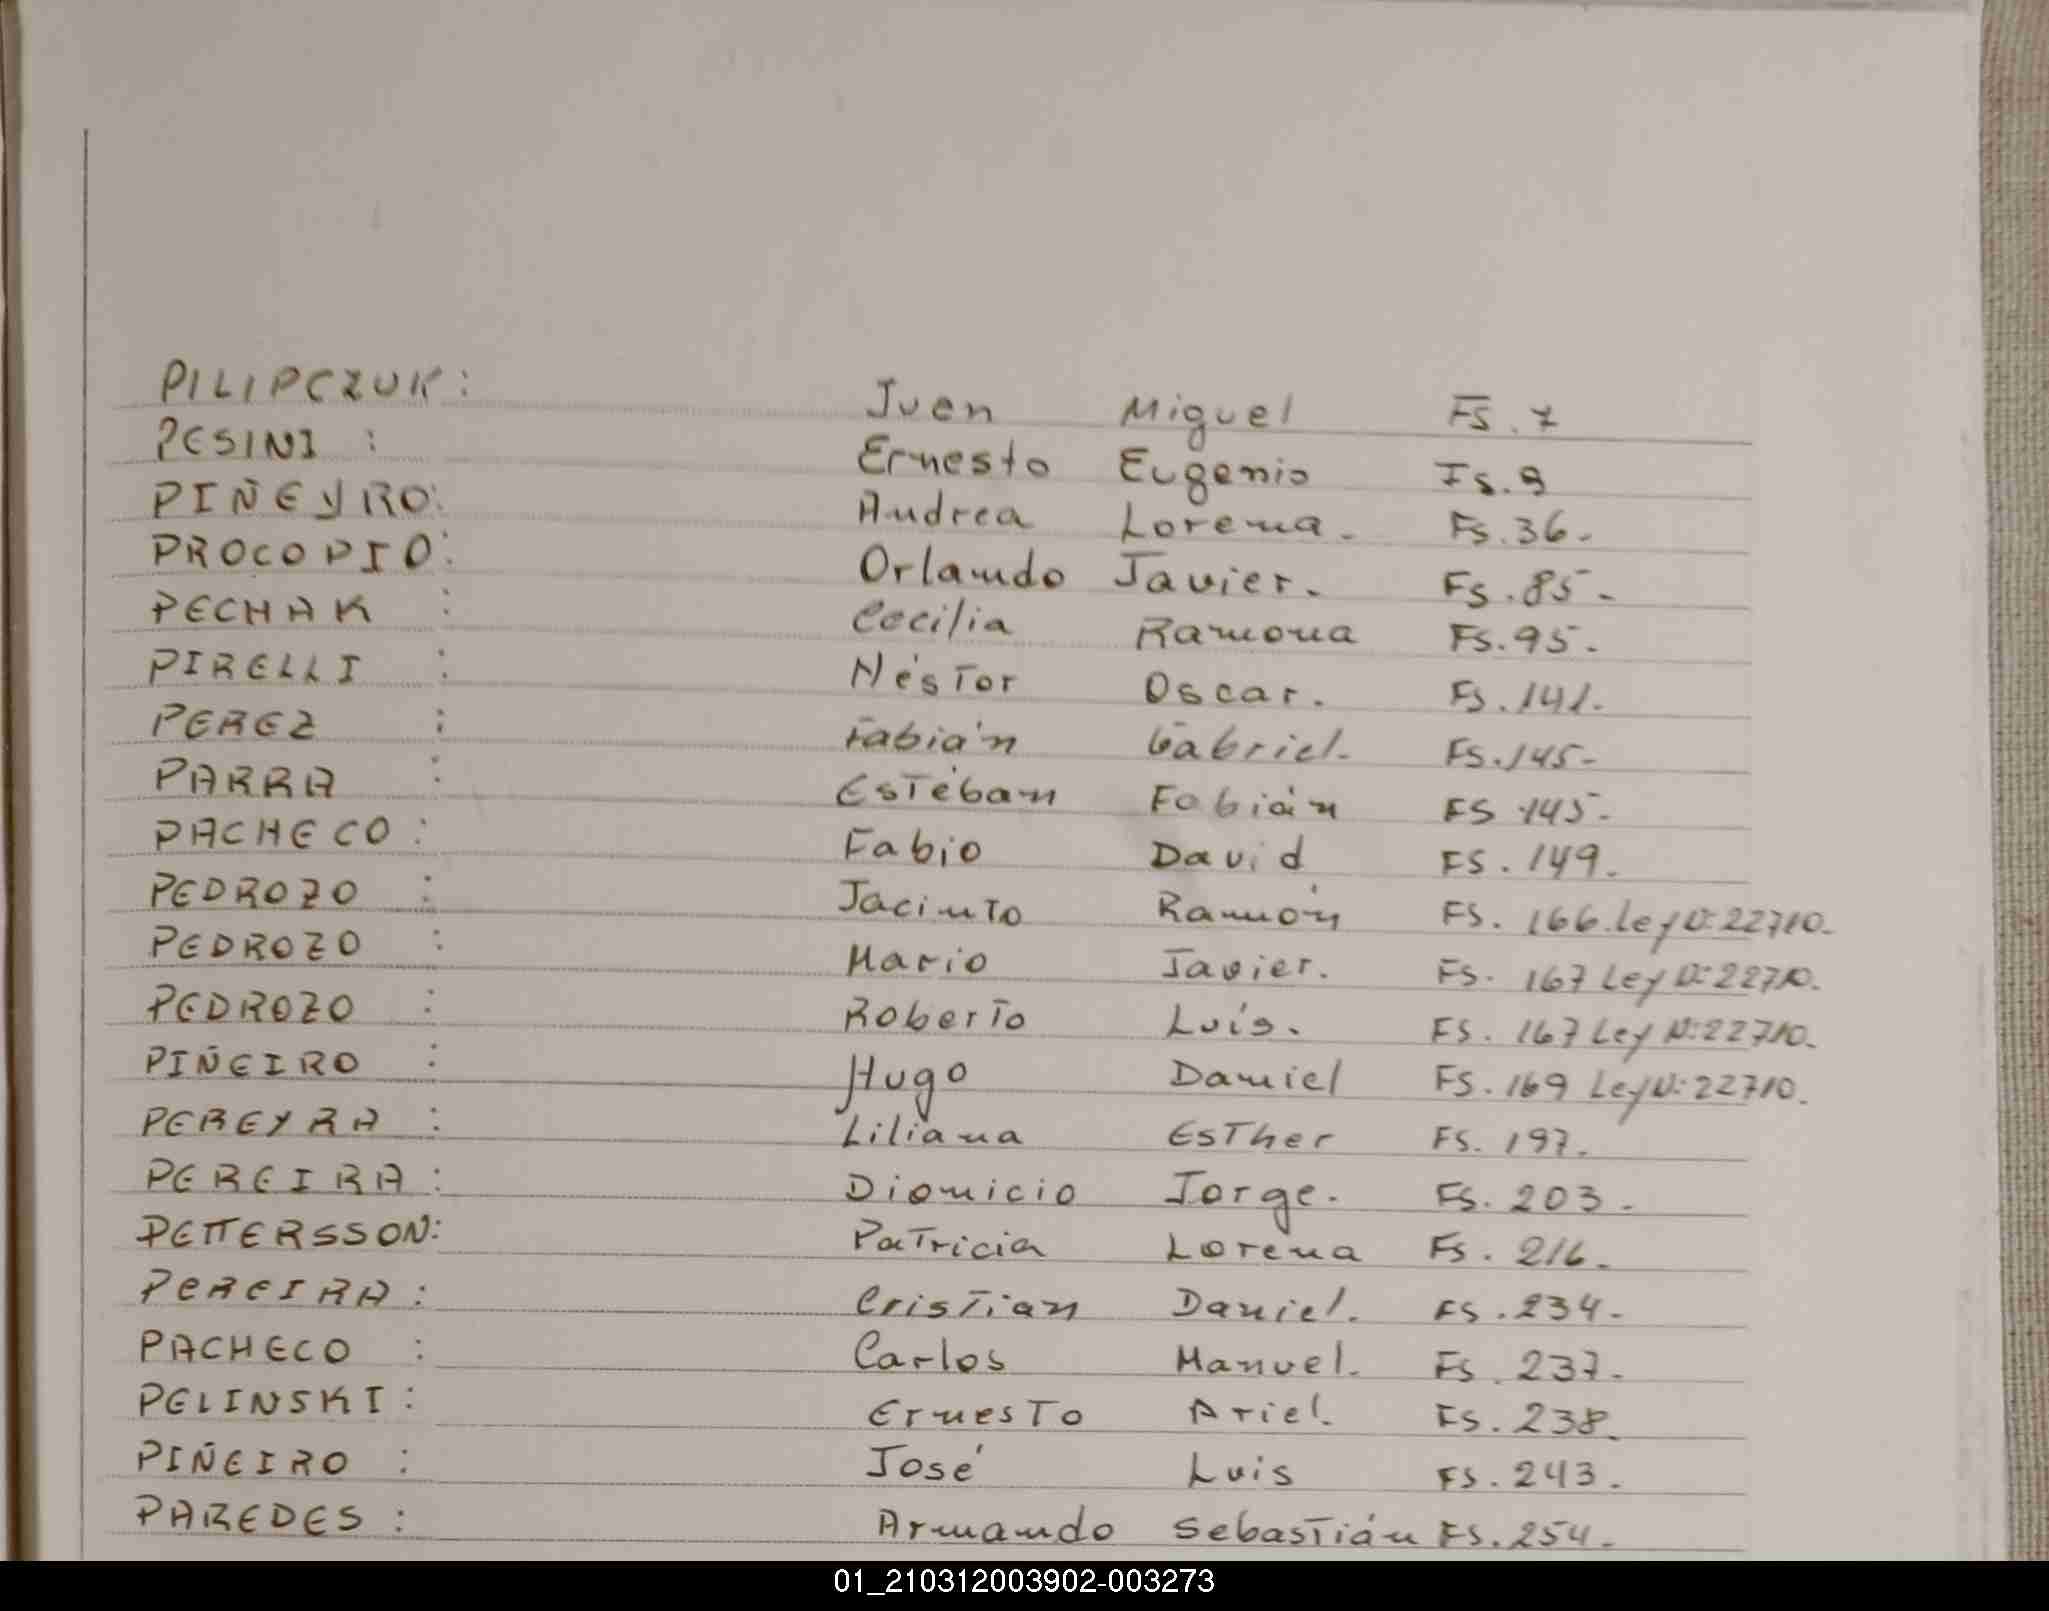 PILIPCZUK: Juan Miguel Fs. 7
PESINI : Ernesto Eugenio Fs. 9
PIÑEYRO: Andrea Lorena. Fs. 36.
PROCOPIO: Orlando Javier. Fs. 85.
PECHAK : Cecilia Ramona Fs. 95.
PIRELLI : Néstor Oscar. Fs. 141.
PEREZ : Fabián Gabriel. Fs. 145.
PARRA : Estéban Fabián FS 145.
PACHECO : Fabio David FS. 149.
PEDROZO : Jacinto Ramón FS. 166. Ley N: 22710.
PEDROZO : Mario Javier. FS. 167 Ley N: 22710.
PEDROZO : Roberto Luís. FS. 167 Ley N: 22710.
PIÑEIRO : Hugo Daniel FS. 169 Ley N: 22710.
PEREYRA : Liliana Esther FS. 197.
PEREIRA : Dionicio Jorge. Fs. 203.
PETTERSSON: Patricia Lorena Fs. 216.
PEREIRA : Cristian Daniel. FS. 234.
PACHECO : Carlos Manuel. Fs. 237.
PELINSKI : Ernesto Ariel. Fs. 238.
PIÑEIRO : José Luis FS. 243.
PAREDES : Armando Sebastián FS. 254.
01_210312003902-003273